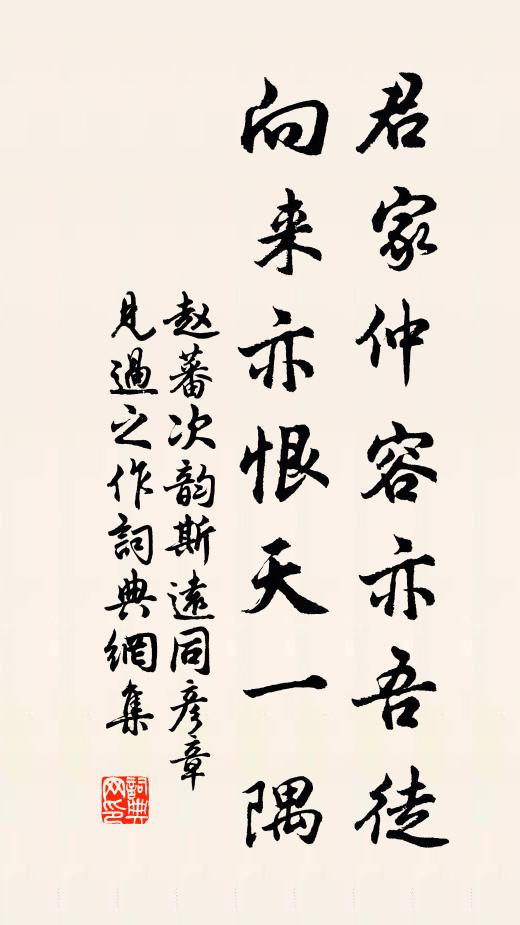 君家仲容亦吾徒
向来亦恨天一隅
赵蕃次韵斯遠同彦章
見過之作詞典網集
詞典網印